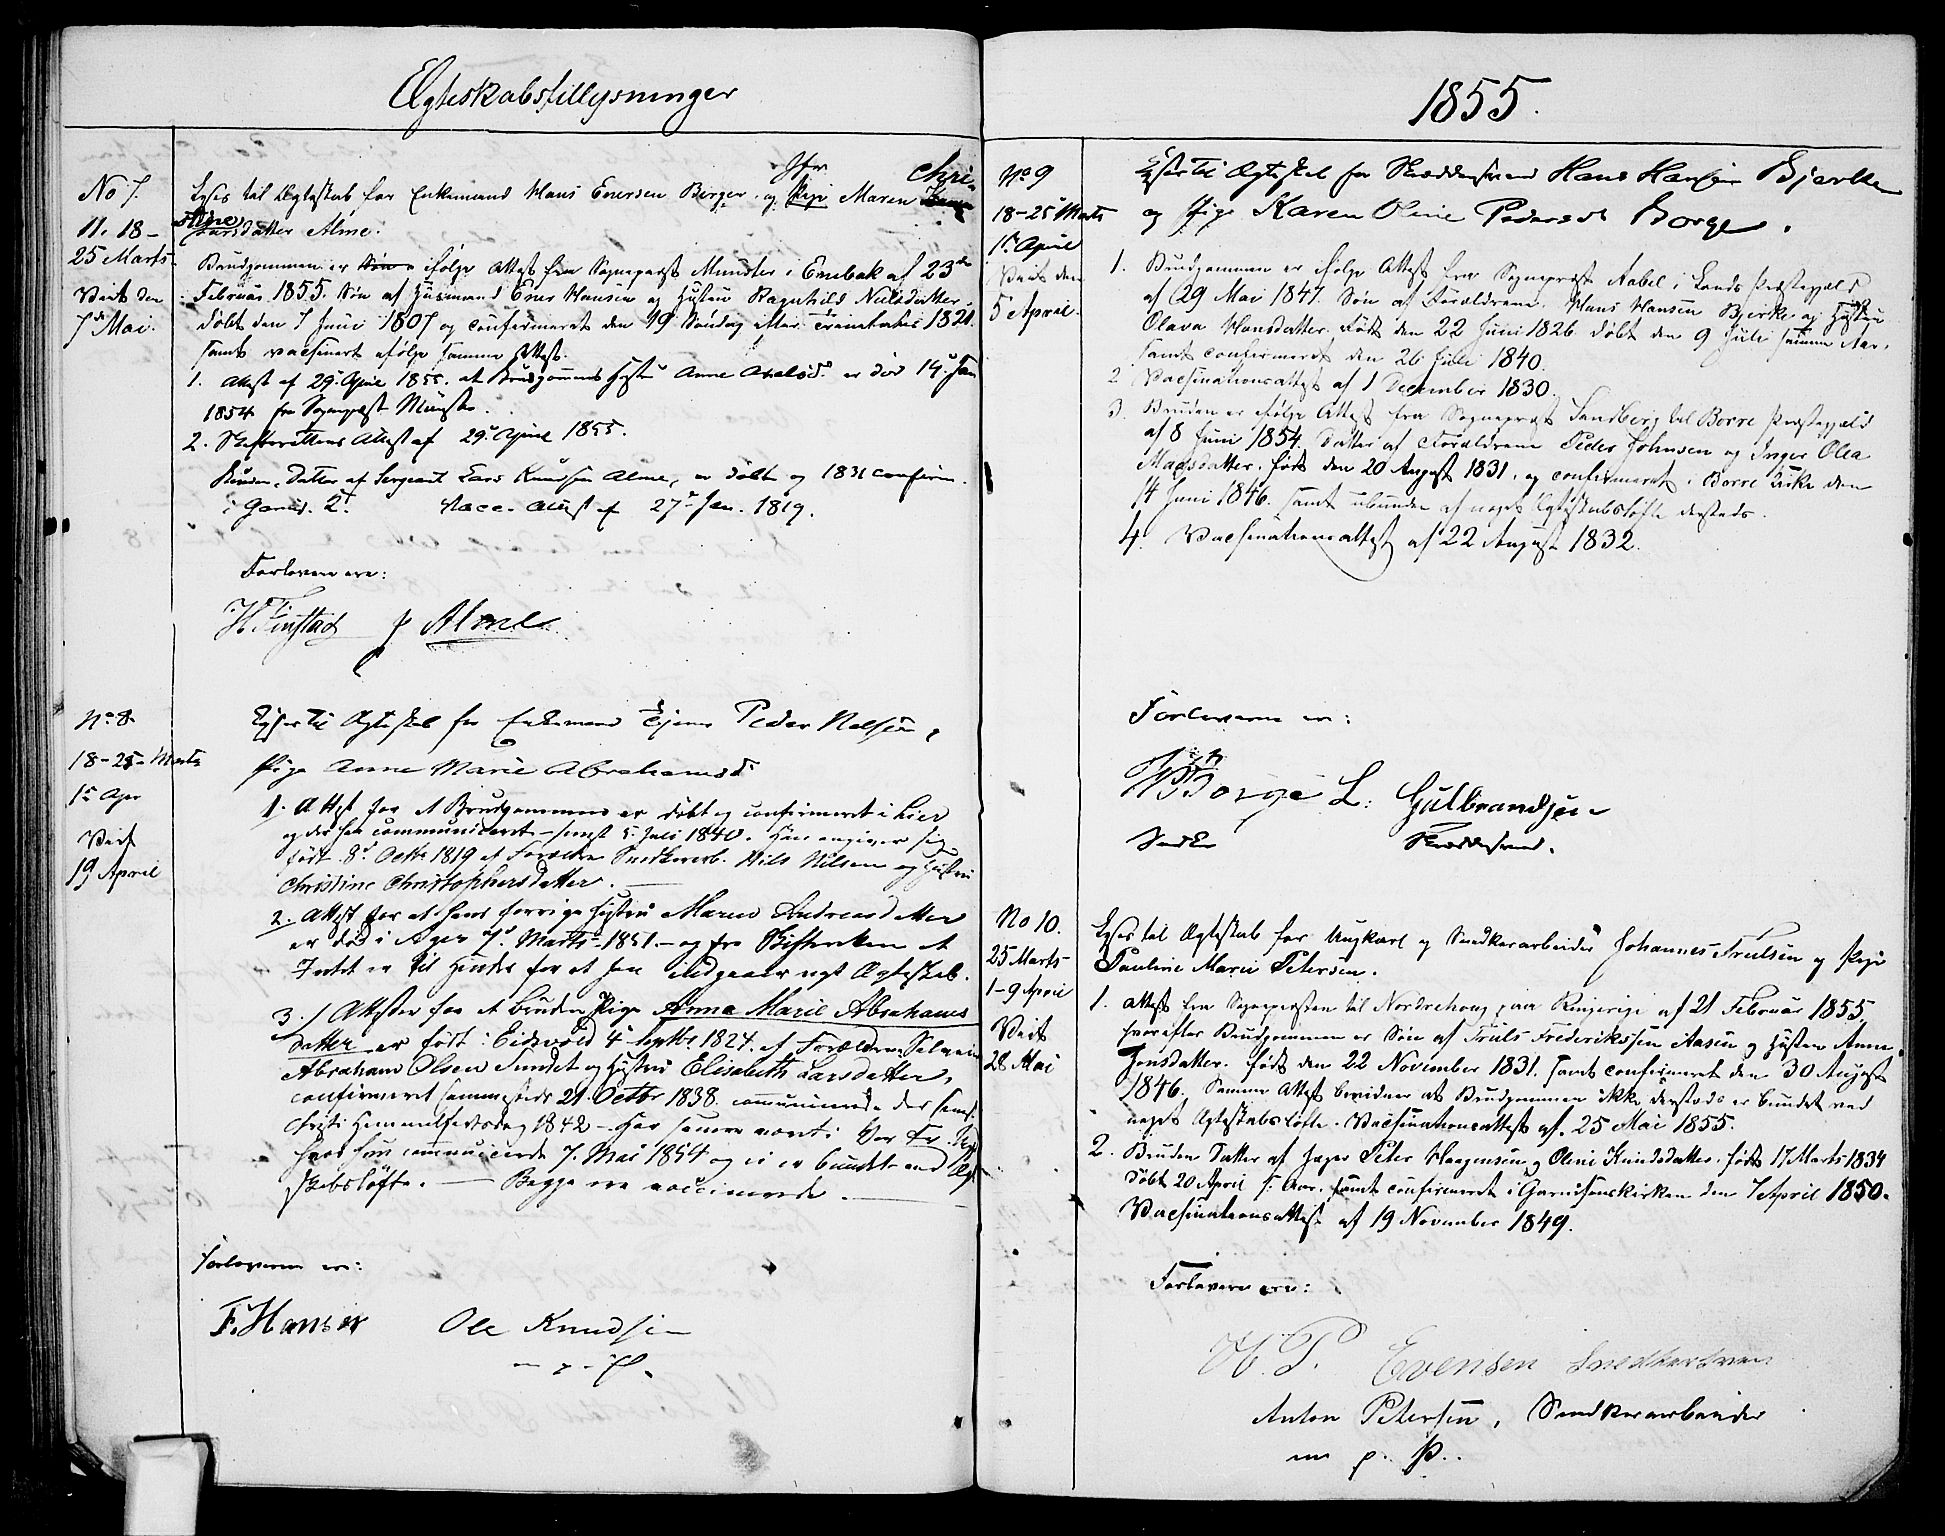 Ægteskabstillysninger
No 7.
11. 18-
25 Marts.
Viet den
7de Mai.
Jfr Chri-
Lyses til Ægteskab for Enkemand Hans Enersen Berger og Pige Maren
stine
Larsdatter Alme.
Brudgommen er ifølge Attest fra Sognepræst Munster i Enebak af 23de
Februar 1855. Søn af Husmand Ener Hansen og Hustru Ragnhild Nielsdatter,
døbt den 7 Juni 1807 og confirmeret den 19 Søndag efter Trinitatis 1821.
samt vaccineret ifølge samme Attest.
1. Attest af 29. April 1855. at Brudgommens Hustru Anne Axelsd. er død 14. Jan
1854 fra Sognepræst Munster.
2. Skifterettens Attest af 29. April 1855.
Bruden, Datter af Sergeant Lars Knudsen Alme, er døbt og 1831 confirm.
i Garnis. K. Vacc. Attest af 27. Jan. 1819.
Forlovere ere:
H Finstad J Alme
No 8
18-25-Marts
1ste Apr
Viet
19 April
Lyses til Ægteskab for Enkemand Peder Nelsen,
Pige Anne Marie Abrahamsd
1. Attest for at Brudgommen er døbt og confirmeret i Lier
og der har communiceret senest 5. Juli 1840. Han angiver sig
født 8. Octbr 1819 af Forældre Snedkerarb. Nils Nilsen og Hustru
Christine Christophersdatter.
2. Attest for at hans forrige Hustru Maren Andreasdatter
er død i Ager 7. Marts 1851. og fra Skifteretten at
Intet er til Hinder for at han indgaaer nyt Ægteskab.
3. Attester for at Bruden Pige Anna Marie Abrahams
datter er født i Eidsvold 4 Septbr 1824. af Forældre Selveier
Abraham Olsen Sundet og Hustru Elisabeth Larsdatter,
confirmeret sammesteds 21. Octbr 1838. communicerede der senest
Christi Himmelfartsdag 1842 - Har senere været i Vor Fr.
hvor hun communicerede 7. Mai 1854 og ei er bundet ved Æg-
teskabsløfte. - Begge ere vaccinerede.
Forloverne ere:
F. Hansen Ole Knudsen
m. p. P.
1855.
No 9
18-25 Marts
1ste April
Viet den
5 April.
Lyses til Ægteskab for Skræddersvend Hans Hansen Bjerke
og Pige Karen Oline Pedersd Borge.
1. Brudgommen er ifølge Attest fra Sognepræst Aabel i Lands Præstegjæld
af 29 Mai 1847. Søn af Forældrene Hans Hansen Bjerke og Hustru
Olava Hansdatter. født den 22 Juni 1826 døbt den 9 Juli samme Aar,
samt confirmeret den 26 Juli 1840.
2 Vaccinationsattest af 1 December 1830.
3. Bruden er ifølge Attest fra Sognepræst Sandberg til Borre Præstegjæld
af 8 Juni 1854. Datter af Forældrene Peder Johnsen og Inger Olea
Madsdatter. født den 20 August 1831. og confirmeret i Borre Kirke den
14 Juni 1846. samt ubunden af noget Ægteskabsløfte dersteds.
4. Vaccinationsattest af 22 August 1832.
Forloverne ere:
Borge L: Gulbrandsen
Snedker Skræddersvend.
No 10.
25 Marts
1-9 April
Viet
28 Mai
Lyses til Ægteskab for Ungkarl og Snedkerarbeider Johannes Trulsen og Pige
Pauline Marie Petersen.
1. Attest fra Sognepræsten til Norderhoug paa Ringerige af 21 Februar 1855.
hvorefter Brudgommen er Søn af Truls Frederikssen Aasen og Hustru Anne
Jonsdatter. født den 22 November 1831. samt confirmeret den 30 August
1846. Samme Attest bevidner at Brudgommen ikke dersteds er bundet ved
noget Ægteskabsløfte. Vaccinationsattest af. 25 Mai 1855.
2. Bruden Datter af Jæger Peter Haagensen og Oline Knudsdatter. født 17 Marts 1834
døbt 20 April s. Aar. samt confirmeret i Garnisonskirken den 7 April 1850.
Vaccinationsattest af 19 November 1849.
Forlovere ere:
H. P. Evensen Snedkersvend
Anton Petersen, Snedkerarbeider
m. p. P.